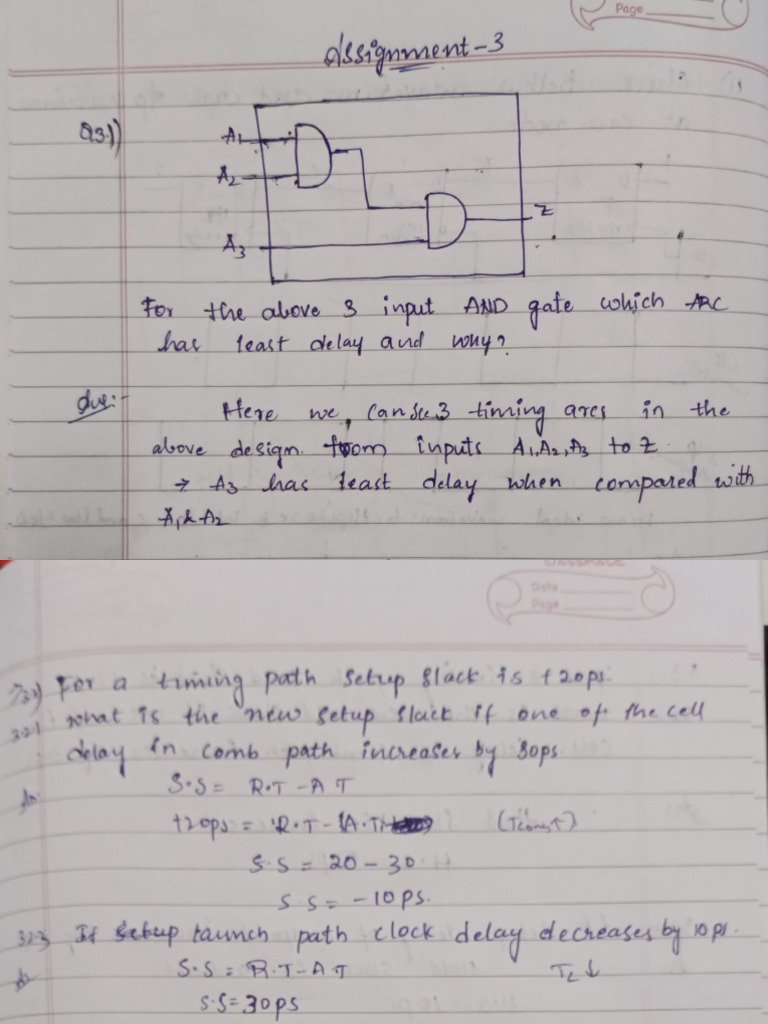 Page
Assignment-3
Q3.1)
A1
A2
A3
Z
For the above 3 input AND gate which ARC
has least delay and why?
Here we, can see 3 timing arcs in the
above design. from inputs A1,A2,A3 to Z.
→ A3 has least delay when compared with
A1 & A2
Date
Page
For a timing path setup slack is +20ps.
3.2.1 what is the new setup slack if one of the cell
delay in comb path increases by 30ps.
S.S = R.T - A T
+20ps = R.T - (A.T (Tcomb↑)
S.S = 20 - 30
S.S = -10 PS.
3.2.3 If setup launch path clock delay decreases by 10ps.
S.S = R.T - A.T TL ↓
S.S = 30ps